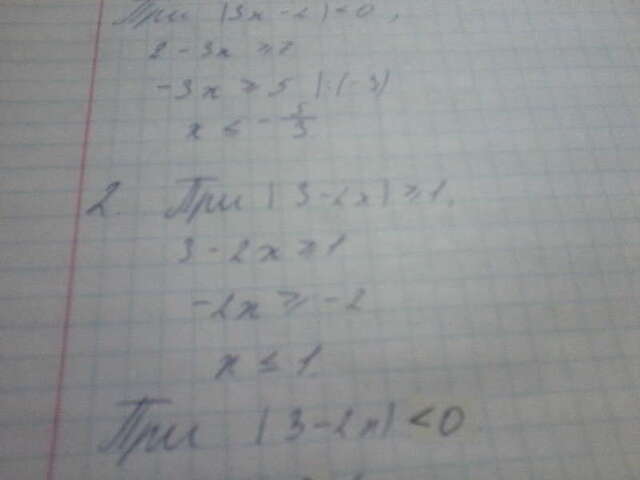 При |3x - 2| < 0,
2 - 3x ≥ 7
-3x ≥ 5 |:(-3)
x ≤ - 5/3
2. При |3-2x| ≥ 1,
3 - 2x ≥ 1
-2x ≥ -2
x ≤ 1
При |3-2x| < 0